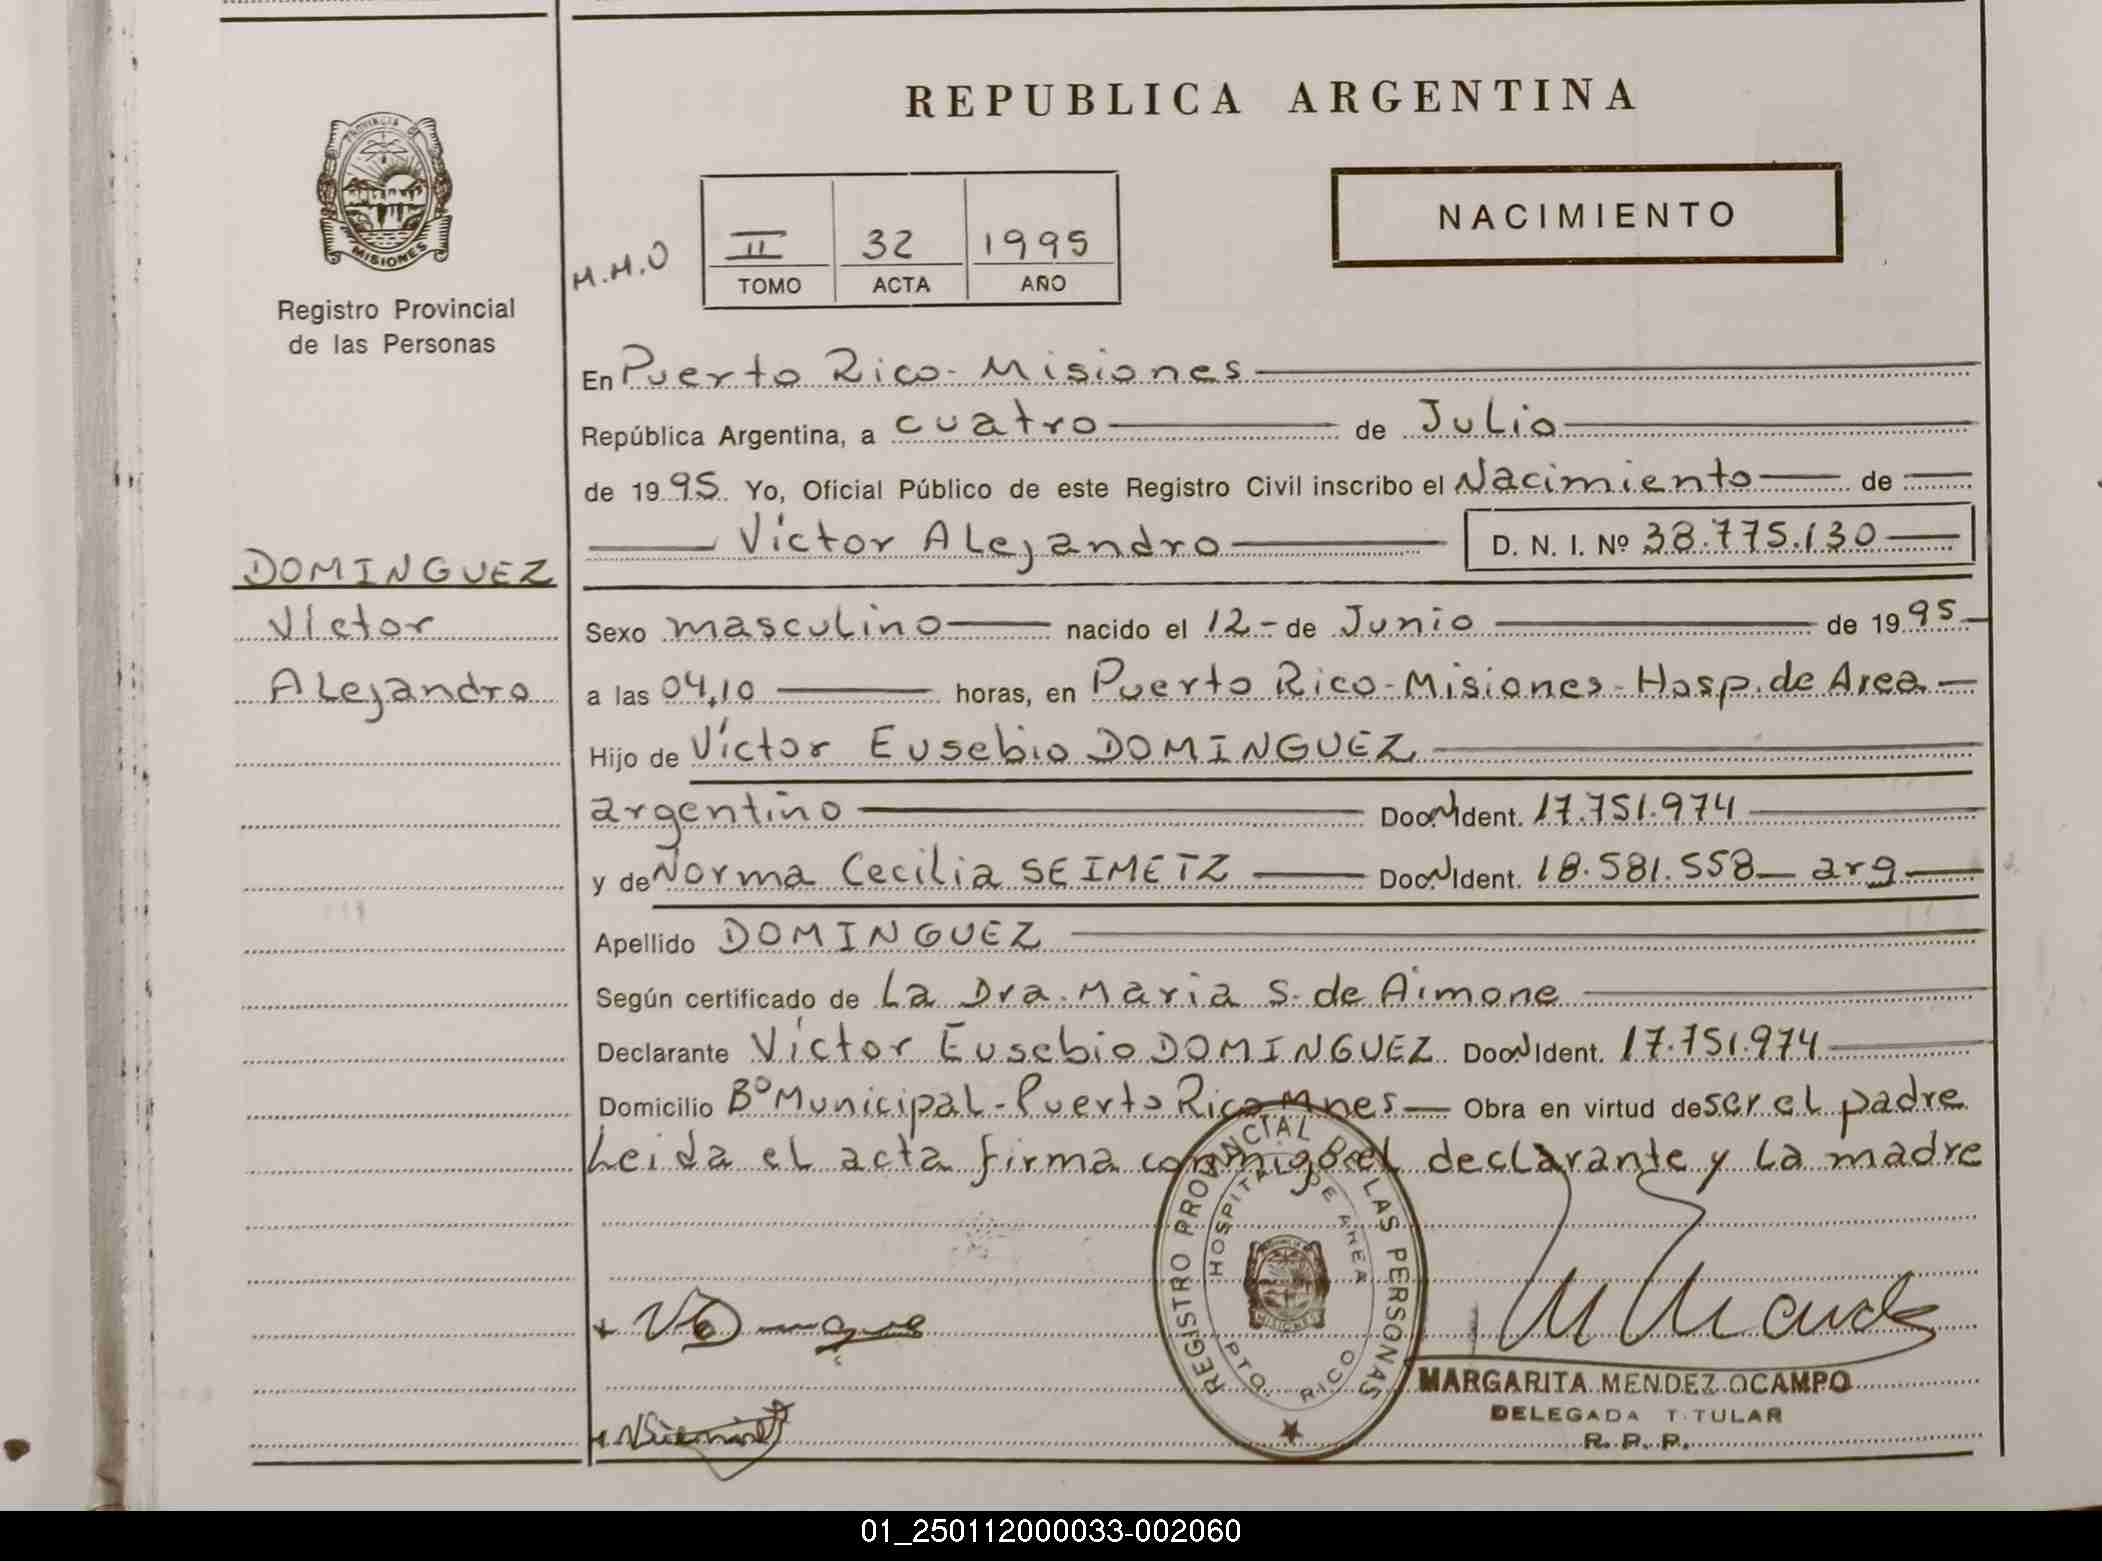 REPUBLICA ARGENTINA
PROVINCIA DE MISIONES
Registro Provincial
de las Personas
M.M.O
II 32 1995
TOMO ACTA AÑO
NACIMIENTO
En Puerto Rico - Misiones
República Argentina, a cuatro de Julio
de 1995 Yo, Oficial Público de este Registro Civil inscribo el Nacimiento de
Víctor Alejandro D. N. I. Nº 38.775.130
DOMINGUEZ
Víctor
Alejandro
Sexo masculino nacido el 12 - de Junio de 1995
a las 04,10 horas, en Puerto Rico - Misiones - Hosp. de Area
Hijo de Víctor Eusebio DOMINGUEZ
argentino Doc. N Ident. 17.751.974
y de Norma Cecilia SEIMETZ Doc. N Ident. 18.581.558 arg
Apellido DOMINGUEZ
Según certificado de La Dra. Maria S. de Aimone
Declarante Víctor Eusebio DOMINGUEZ Doc. N Ident. 17.751.974
Domicilio Bº Municipal - Puerto Rico Mnes Obra en virtud de ser el padre
Leida el acta firma conmigo el declarante y La madre
REGISTRO PROVINCIAL DE LAS PERSONAS
HOSPITAL DE AREA
PTO. RICO
MARGARITA MENDEZ OCAMPO
DELEGADA TITULAR
R. P. P.
01_250112000033-002060